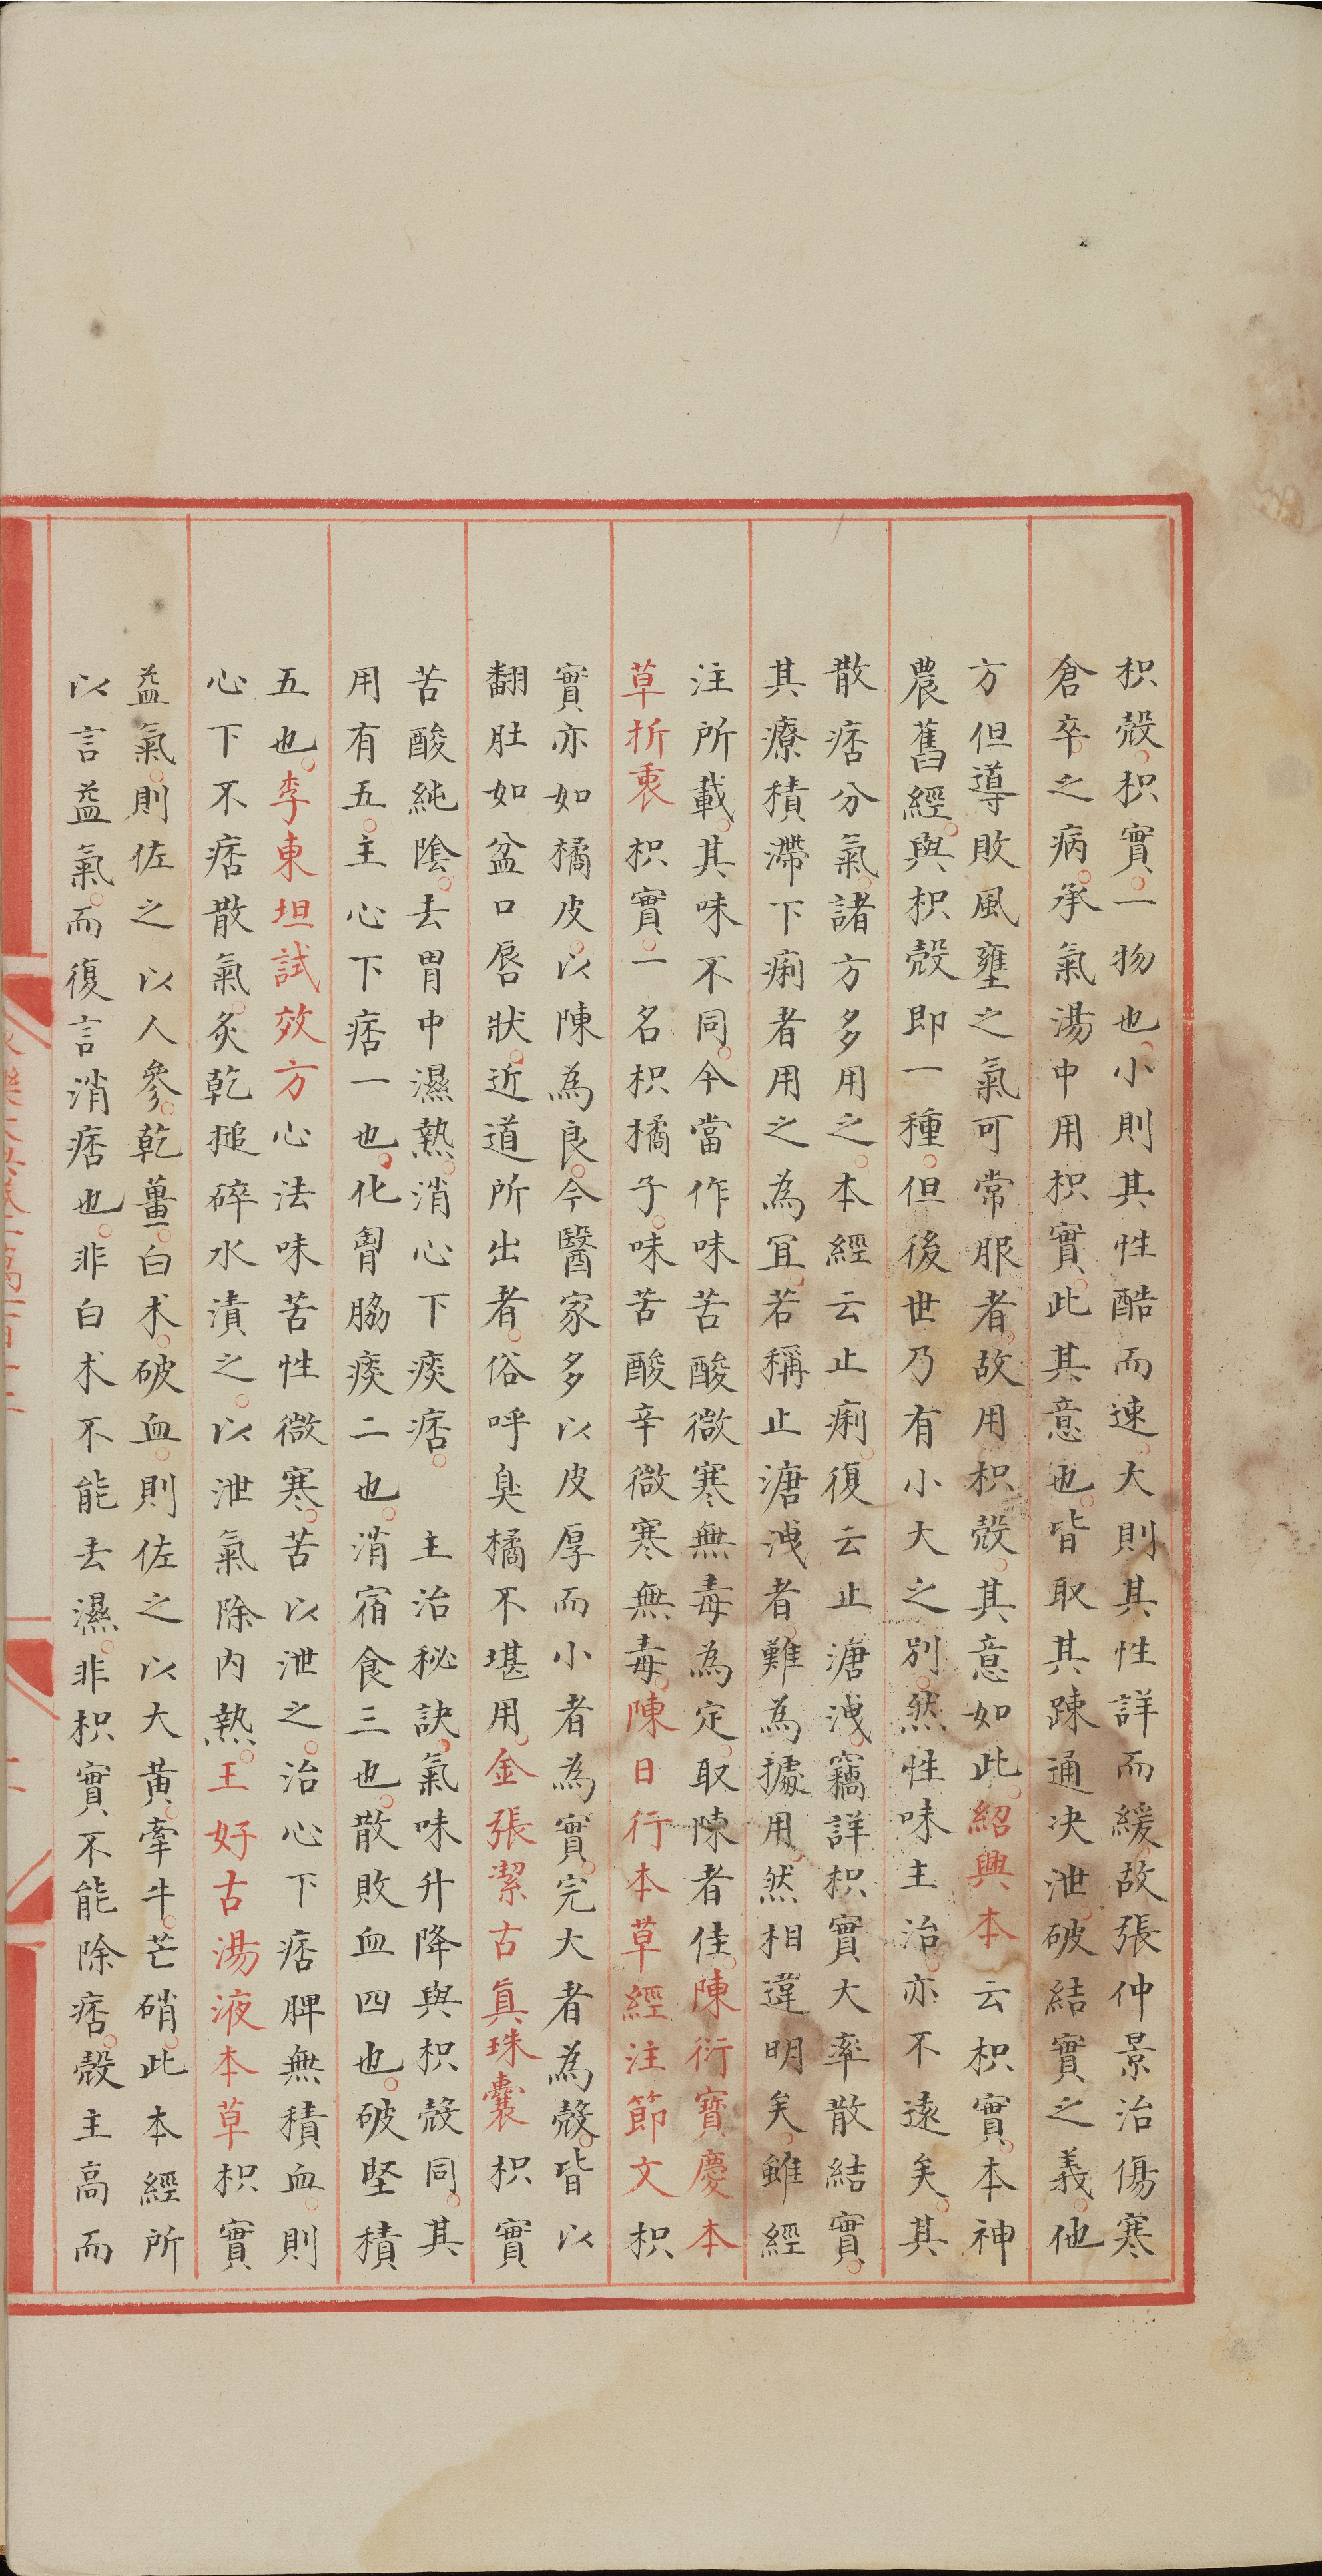 枳殼枳實一物也小則其性酷而速大則其性詳而緩故張仲景治傷寒
倉卒之病承氣湯中用枳實此其意也皆取其踈通决泄破結實之義他
方但導敗風壅之氣可常服者故用枳殼其意如此紹興本云枳實本神
農舊經與枳殼即一種但後世乃有小大之別然性味主治亦不遠矣其
散痞分氣諸方多用之本經云止痢復云止溏洩竊詳枳實大率散結實
其療積滯下痢者用之為宜若稱止溏洩者難為據用然相違明矣雖經
注所載其味不同今當作味苦酸微寒無毒為定取陳者佳陳衍寶慶本
草折衷枳實一名枳橘子味苦酸辛微寒無毒陳日行本草經注節文枳
實亦如橘皮以陳為良今醫家多以皮厚而小者為實完大者為殼皆以
翻肚如盆口唇狀近道所出者俗呼臭橘不堪用金張潔古真珠囊枳實
苦酸純陰去胃中濕熱消心下痰痞主治秘訣氣味升降與枳殼同其
用有五主心下痞一也化胷脇痰二也消宿食三也散敗血四也破堅積
五也李東垣試效方心法味苦性微寒苦以泄之治心下痞脾無積血則
心下不痞散氣炙乾搥碎水漬之以泄氣除内熱王好古湯液本草枳實
益氣則佐之以人參乾薑白术破血則佐之以大黃牽牛芒硝此本經所
以言益氣而復言消痞也非白术不能去濕非枳實不能除痞殼主高而